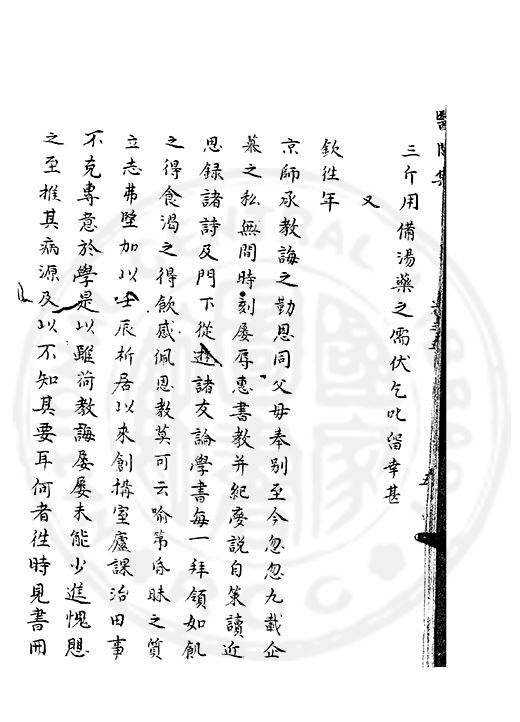 三斤用備湯藥之需伏乞叱留幸甚
又
欽徃年
京師承教誨之勤恩同父母奉別至今忽忽九載企
慕之私無間時刻屡辱惠書教并紀夢説自策讀近
思録諸詩及門下從遊諸友論學書每一拜領如飢
之得食渴之得飲感佩恩教莫可云喻苐昏昧之質
立志弗堅加以壬辰析居以來創搆室廬課治田事
不克專意於學是以雖荷教誨屡屡未能少進愧恧
之至推其病源及以不知其要耳何者徃時見書冊